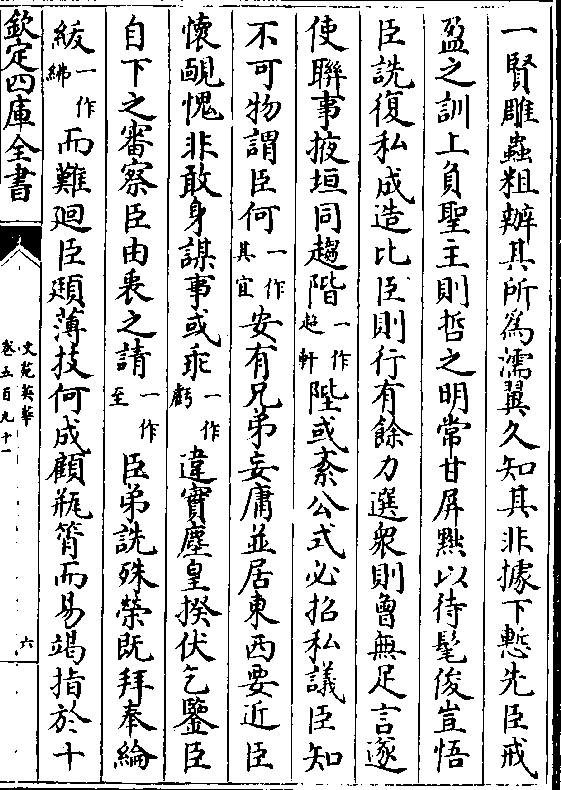 一賢雕蟲粗辦其所為濡翼久知其非據下慙先臣戒
盈之訓上負聖主則哲之明常甘屏黜以待髦俊豈悟
臣詵復私成造比臣則行有餘力選衆則曾無足言遂
使聯事掖垣同趨階一作趍軒陛或紊公式必招私議臣知
不可物謂臣何一作其宜安有兄弟妄庸並居東西要近臣
懷靦愧非敢身謀事或乖一作虧違實塵皇揆伏乞鑒臣
自下之審察臣由衷之請一作至臣弟詵殊榮既拜奉綸
綍一作紼而難迴臣頲薄技何成顧瓶筲而易竭指於十
欽定四庫全書
文苑英華
卷五百九十一
六